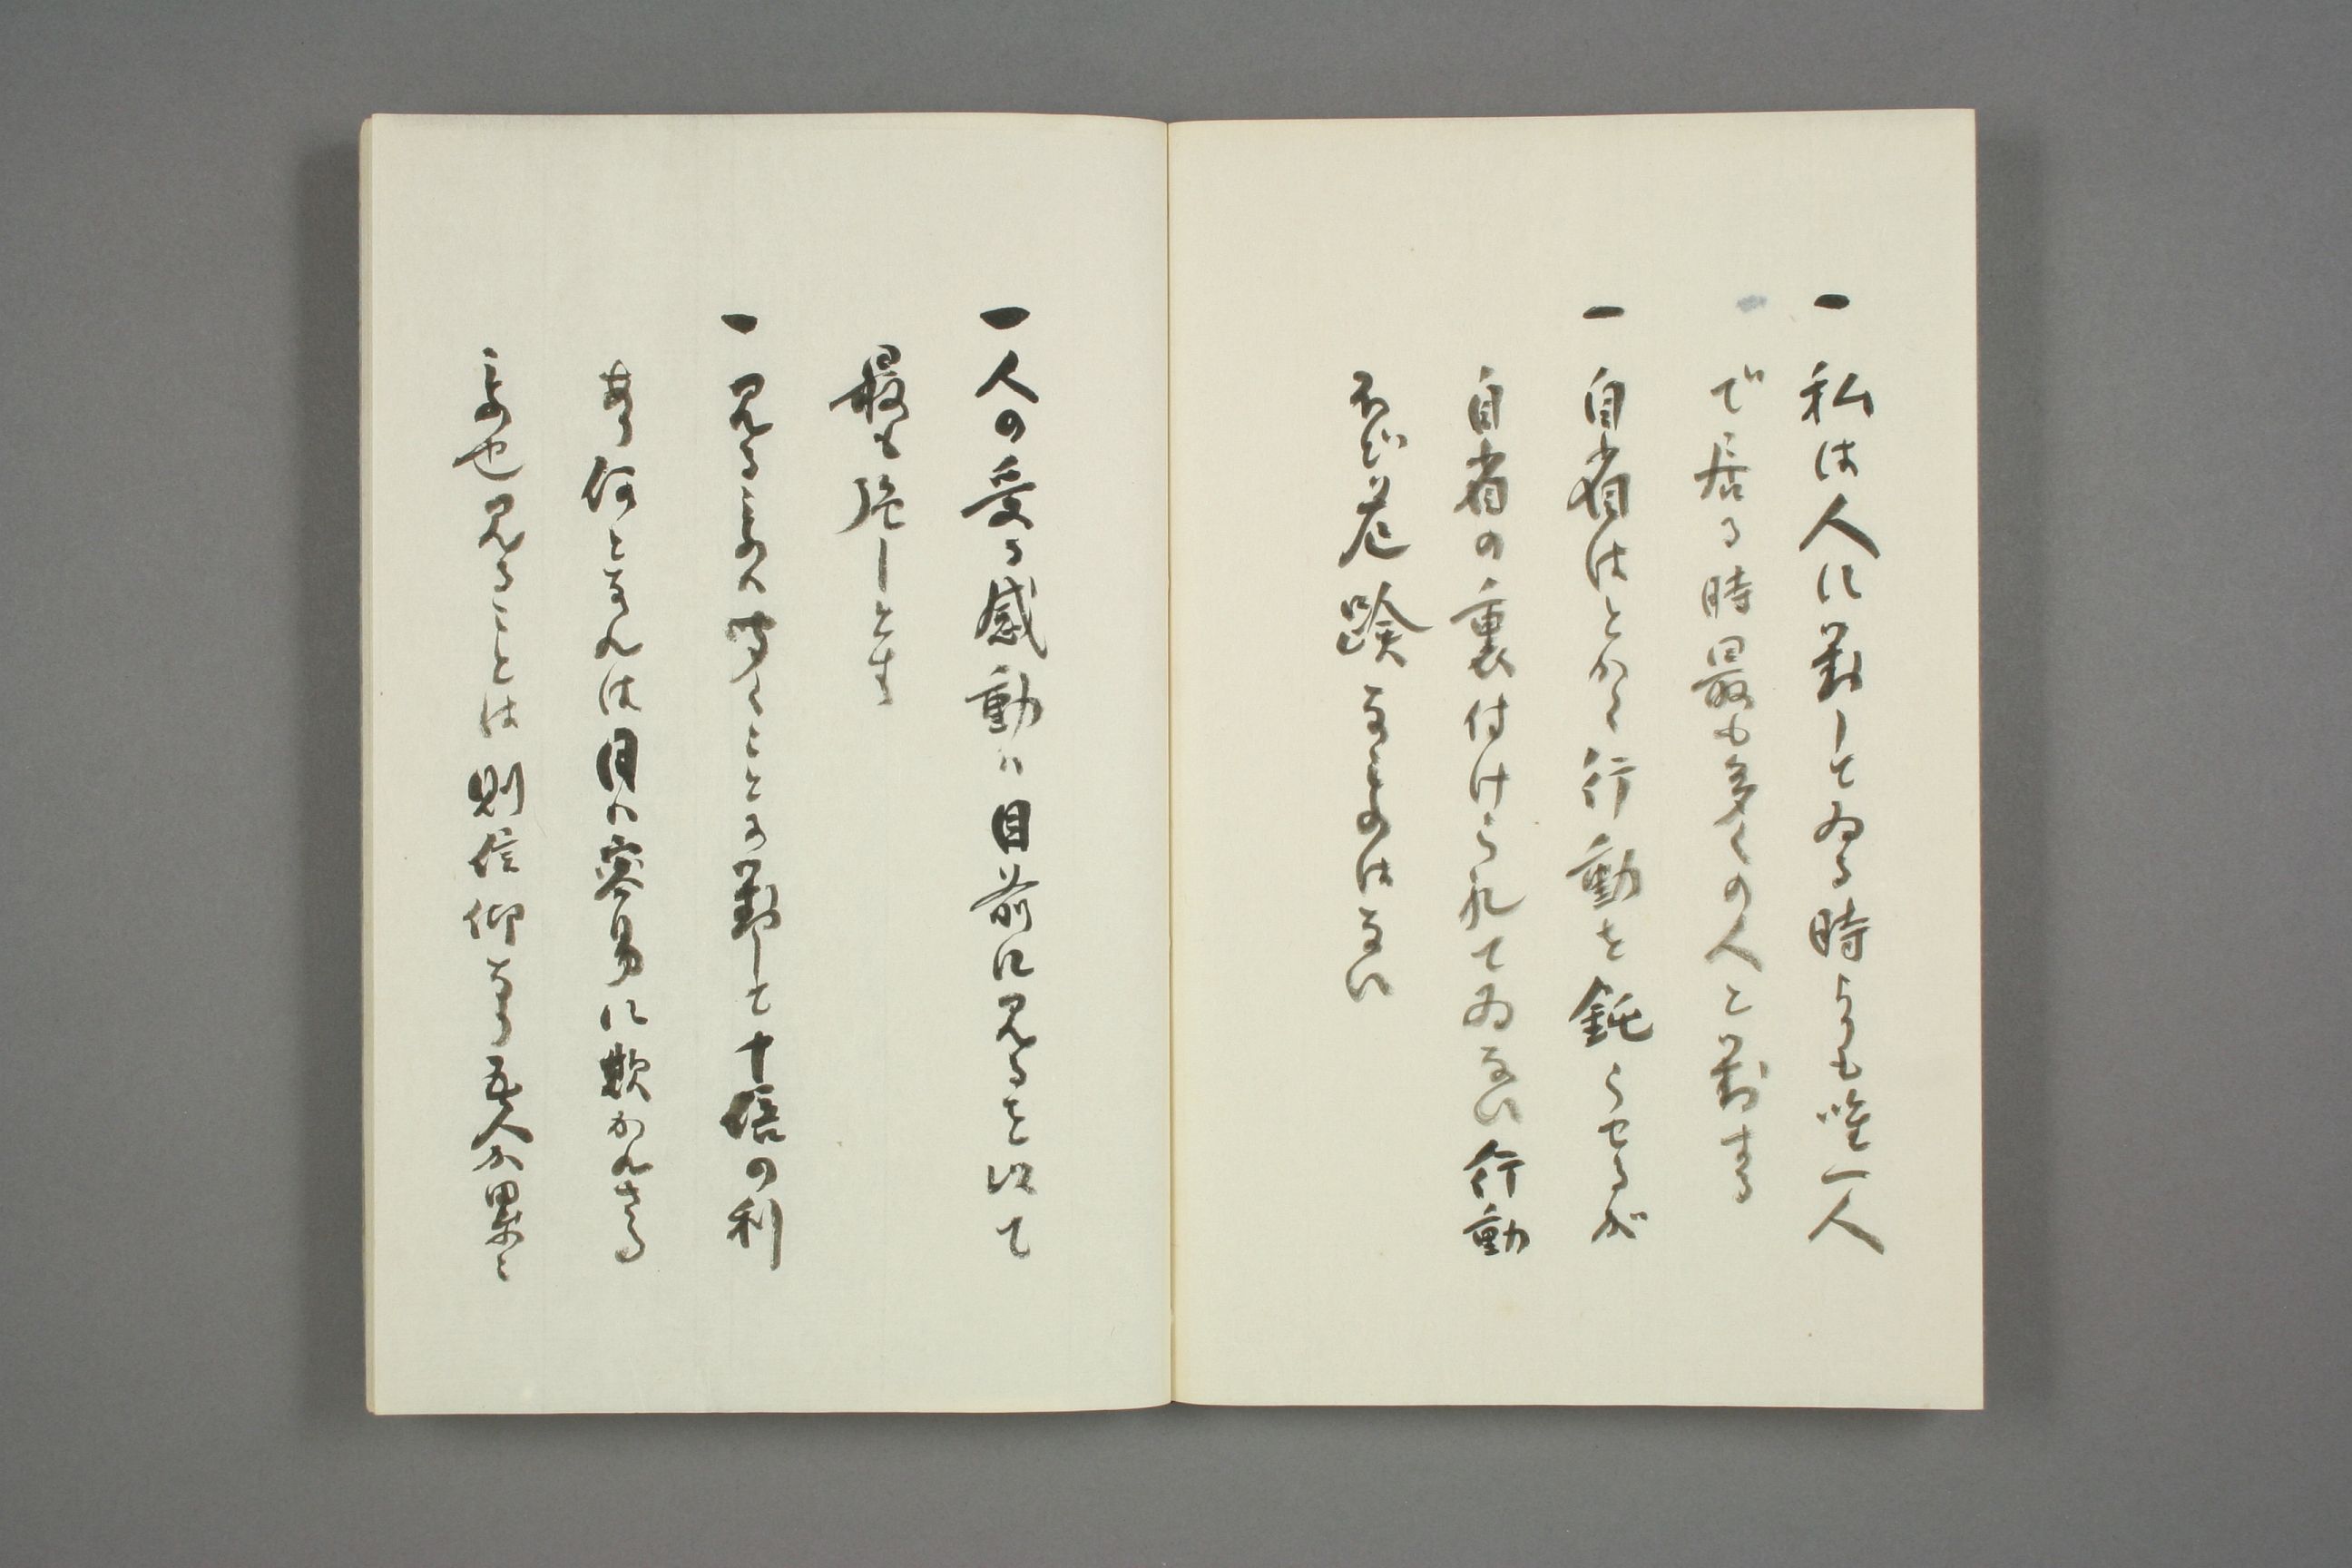 一 私は人に對してゐる時よりも唯一人
で居る時最も多くの人と對する
一 自省はとかく行動を鈍らせるが
自省の裏付けられてゐない行動
ほど危険なものはない
一 人の受る感動は目前に見るを以て
最も強しとす
一 見るものは聞くことに對して十倍の利
あり何となれは目は容易に欺かれさる
もの也見ることは則信仰なり吾人か果と